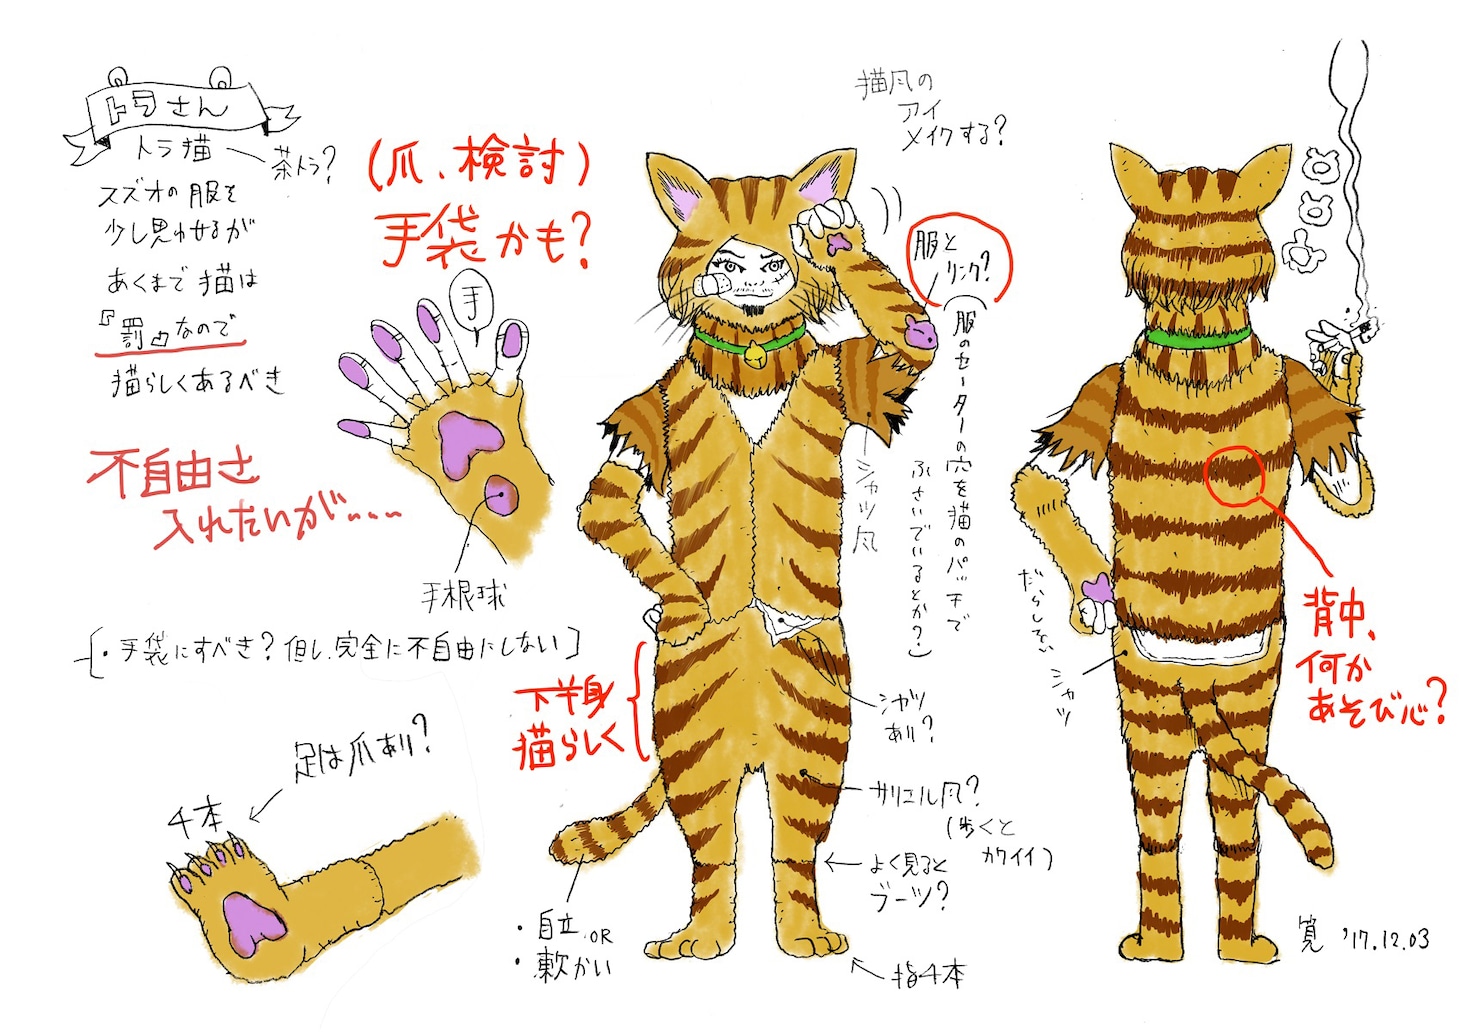 トラさん
トラ猫
茶トラ?
スズオの服を
少し思わせるが
あくまで猫は
『罰』なので
猫らしくあるべき
不自由さ
入れたいが....
(爪、検討)
手袋かも?
手
手根球
・手袋にすべき?但し、完全に不自由にしない
足は爪あり?
4本
猫風の
アイ
メイクする?
服と
リンク?
(服のセーターの穴を猫のパッチで
ふさいでいるとか?)
シャツ風
下半身
猫らしく
シャツ
あり?
サリエル風?
(歩くと
カワイイ)
よく見ると
ブーツ?
・自立 OR
・軟かい
指4本
だらしない
シャツ
背中、
何か
あそび心?
寛 '17.12.03